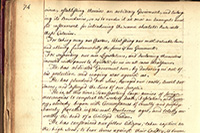 ince, establishing therein an arbitrary Government, and enlarg
ing its Boundaries, so as to render it at once an example and
fit instrument for introducing the same absolute rule into
these Colonies:
For taking away our Charters, abolishing our most valuable Laws,
and altering fundamentally the forms of our Governments:
For suspending our own Legislatures, and declaring themselves
invested with power to legislate for us in all cases whatsoever.
He has abdicated Government here, by declaring us out of
his protection, and waging war against us:
He has plundered our seas, ravaged our coasts, burnt our
towns, and destroyed the lives of our people:
He is at this time transporting large armies of foreign
mercenaries to compleat the works of death, desolation and tyran
ny, already begun with Circumstances of Cruelty and
perfidy
the head of a Civilized Nation:
He has constrained our fellow Citizens, taken captive on
the high seas, to bear arms against their Country, to become